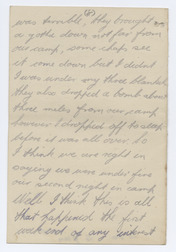 (8)
was terrible, they brought
a gotha down not far from
our camp, some chaps see
it come down but I didnt
I was under my three blankets
they also dropped a bomb about
three miles from our camp
however I dropped off to sleep
before it was all over. so
I think we are right in
saying we were under fire
our second night in camp
Well I think this is all
that happened the first
week end of any interest